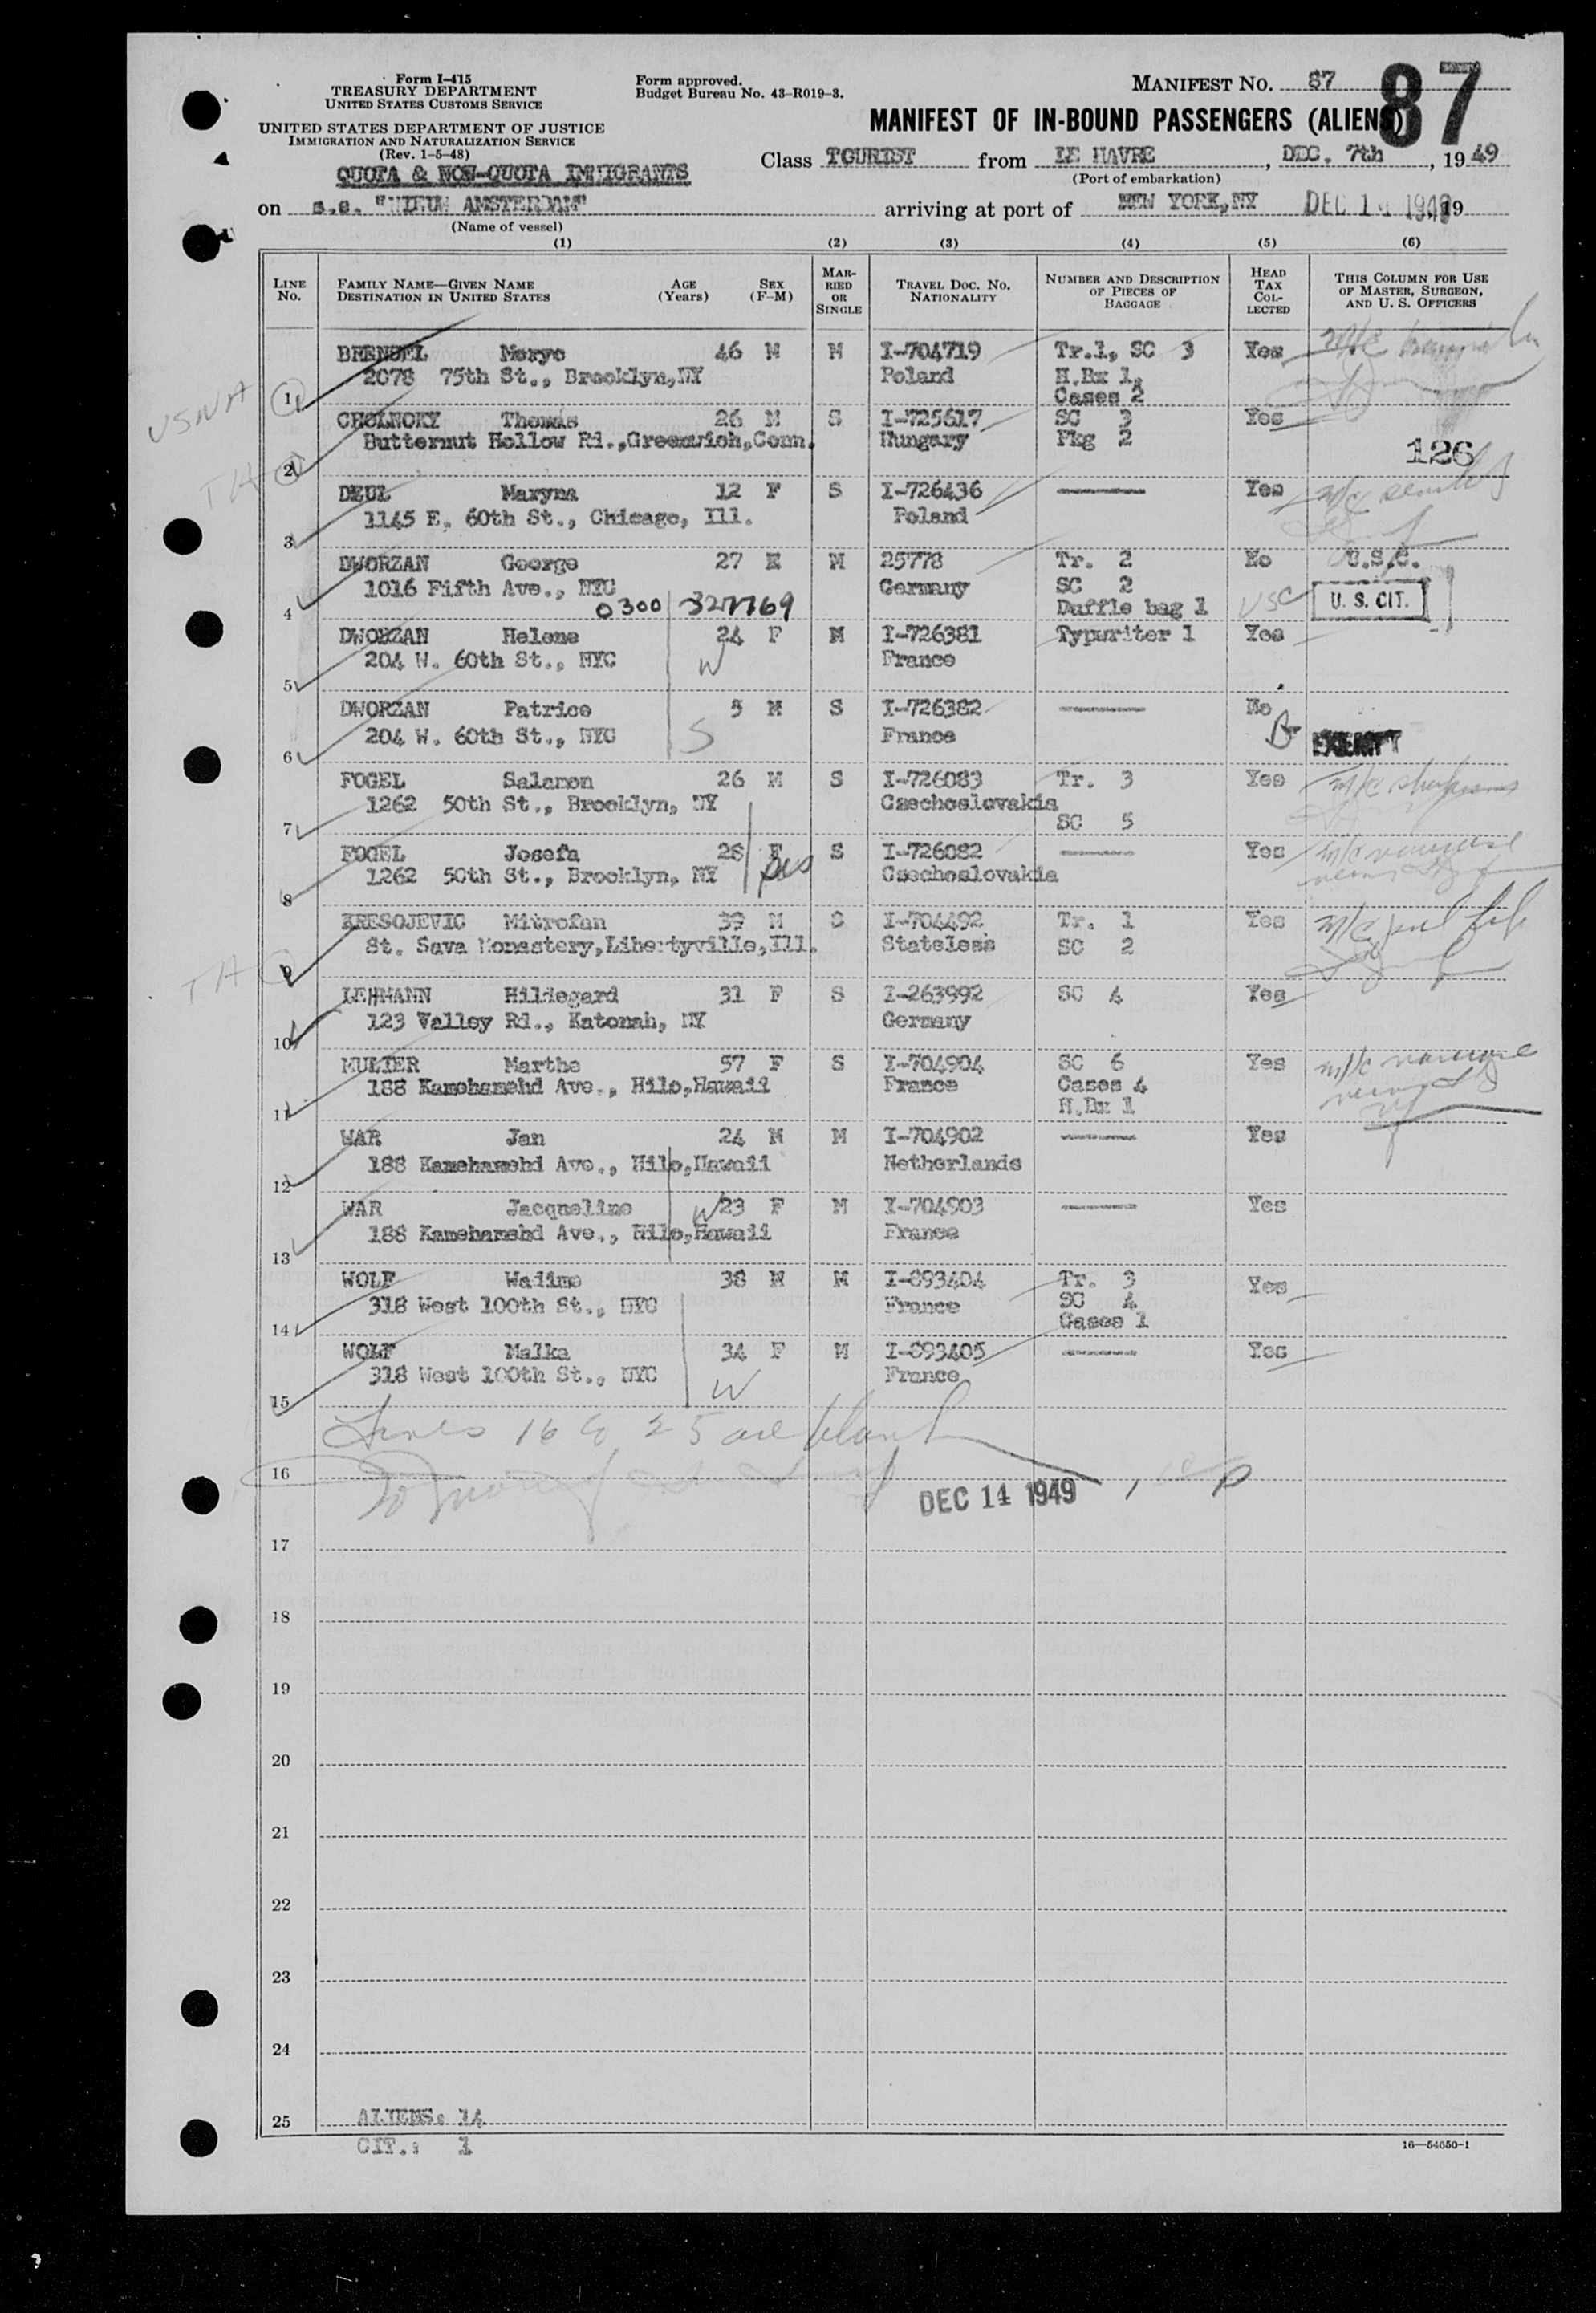 Form I-415
TREASURY DEPARTMENT
UNITED STATES CUSTOMS SERVICE
UNITED STATES DEPARTMENT OF JUSTICE
IMMIGRATION AND NATURALIZATION SERVICE
(Rev. 1-5-48)
QUOTA & NON-QUOTA IMMIGRANTS
Form approved.
Budget Bureau No. 43-R019-3.
MANIFEST NO. 87
87
MANIFEST OF IN-BOUND PASSENGERS (ALIENS)
Class TOURIST from LE HAVRE, DEC. 7th, 1949
(Port of embarkation)
on s.s. "NIEUW AMSTERDAM" arriving at port of NEW YORK,NY DEC 14 1949 19
(Name of vessel)
(1) (2) (3) (4) (5) (6)
LINE NO. FAMILY NAME—GIVEN NAME DESTINATION IN UNITED STATES AGE (Years) SEX (F-M) MARRIED OR SINGLE TRAVEL DOC. NO. NATIONALITY NUMBER AND DESCRIPTION OF PIECES OF BAGGAGE HEAD TAX COLLECTED THIS COLUMN FOR USE OF MASTER, SURGEON, AND U. S. OFFICERS
BRENDEL Moryc 46 M M I-704719 Tr.1, SC 3 Yes
2078 75th St., Brooklyn,NY Poland H.Bx 1,
USNA 1 Cases 2
CHOLNOKY Thomas 26 M S I-725617 SC 3 Yes
Butternut Hollow Rd.,Greenwich,Conn. Hungary Pkg 2
2 126
DEUL Maryna 12 F S I-726436 Yes
1145 E. 60th St., Chicago, Ill. Poland
3
DWORZAN George 27 M M 25778 Tr. 2 No U.S.C.
1016 Fifth Ave., NYC Germany SC 2 USC U. S. CIT.
4 0300 327769 Duffle bag 1
DWORZAN Helene 24 F M I-726381 Typwriter 1 Yes
204 W. 60th St., NYC W France
5
DWORZAN Patrice 5 M S I-726382 No
204 W. 60th St., NYC S France
6 EXEMPT
FOGEL Salamon 26 M S I-726083 Tr. 3 Yes
1262 50th St., Brooklyn, NY Czechoslovakia
7 SC 5
FOGEL Josefa 28 F S I-726082 Yes
1262 50th St., Brooklyn, NY Czechoslovakia
8
KRESOJEVIC Mitrofan 39 M S I-704492 Tr. 1 Yes
St. Sava Monastery,Libertyville,Ill. Stateless SC 2
TA 9
LEHMANN Hildegard 31 F S I-263992 SC 4 Yes
123 Valley Rd., Katonah, NY Germany
10
MULIER Marthe 57 F S I-704904 SC 6 Yes
188 Kamehamehd Ave., Hilo,Hawaii France Cases 4
11 H.Bx 1
WAR Jan 24 M M I-704902 Yes
188 Kamehamehd Ave., Hilo,Hawaii Netherlands
12
WAR Jacqueline W 23 F M I-704903 Yes
188 Kamehamehd Ave., Hilo,Hawaii France
13
WOLF Wadime 38 M M I-893404 Tr. 3 Yes
318 West 100th St., NYC France SC 4
14 Cases 1
WOLF Malka 34 F M I-893405 Yes
318 West 100th St., NYC W France
15
Lines 16 to 25 are blank
16
DEC 14 1949
17
18
19
20
21
22
23
24
25 ALIENS: 14
CIT.: 1
16—54650-1